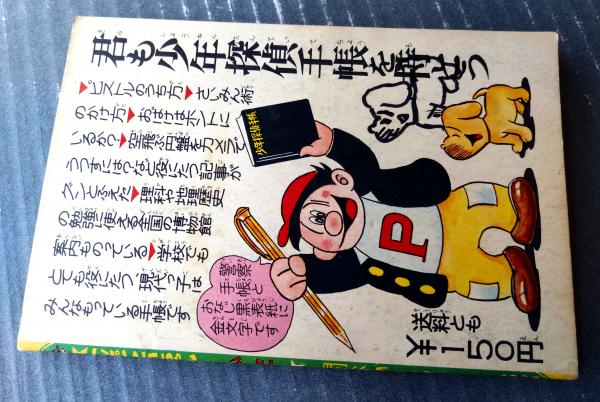 君も少年探偵手帳を持とう
▶ピストルのうち方▶さいみん術
のかけ方▶おばけはホントに
いるか?▶空飛ぶ円盤をカメラで
うつすには?など役にたつ記事が
グンとふえた▶理科や地理歴史
の勉強に使える全国の博物館
案内ものっている▶学校でも
とても役にたつ、現代っ子は
みんなもっている手帳です
少年探偵手帳
P
警察
手帳と
おなじ黒表紙に
金文字です
送料とも
¥150円